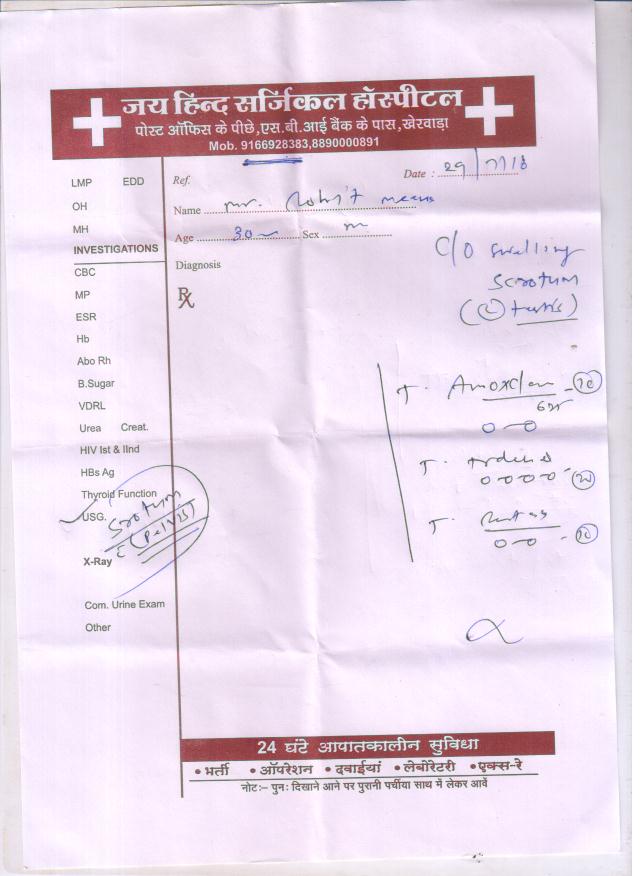 जय हिन्द सर्जिकल हॉस्पीटल
पोस्ट ऑफिस के पीछे,एस.बी.आई बैंक के पास,खेरवाड़ा
Mob. 9166928383,8890000891
LMP EDD
OH
MH
INVESTIGATIONS
CBC
MP
ESR
Hb
Abo Rh
B.Sugar
VDRL
Urea Creat.
HIV Ist & IInd
HBs Ag
Thyroid Function
USG. Scrotum
(Pelvis)
X-Ray
Com. Urine Exam
Other
Ref.
Date :
Name Mr. Rohit
Age 30 Sex m
Diagnosis
Rx
C/O swelling
scrotum
T. Amoxclav
T.
T.
24 घंटे आपातकालीन सुविधा
• भर्ती • ऑपरेशन • दवाईयां • लेबोरेटरी • एक्स-रे
नोट:- पुनः दिखाने आने पर पुरानी पर्चीया साथ में लेकर आवें